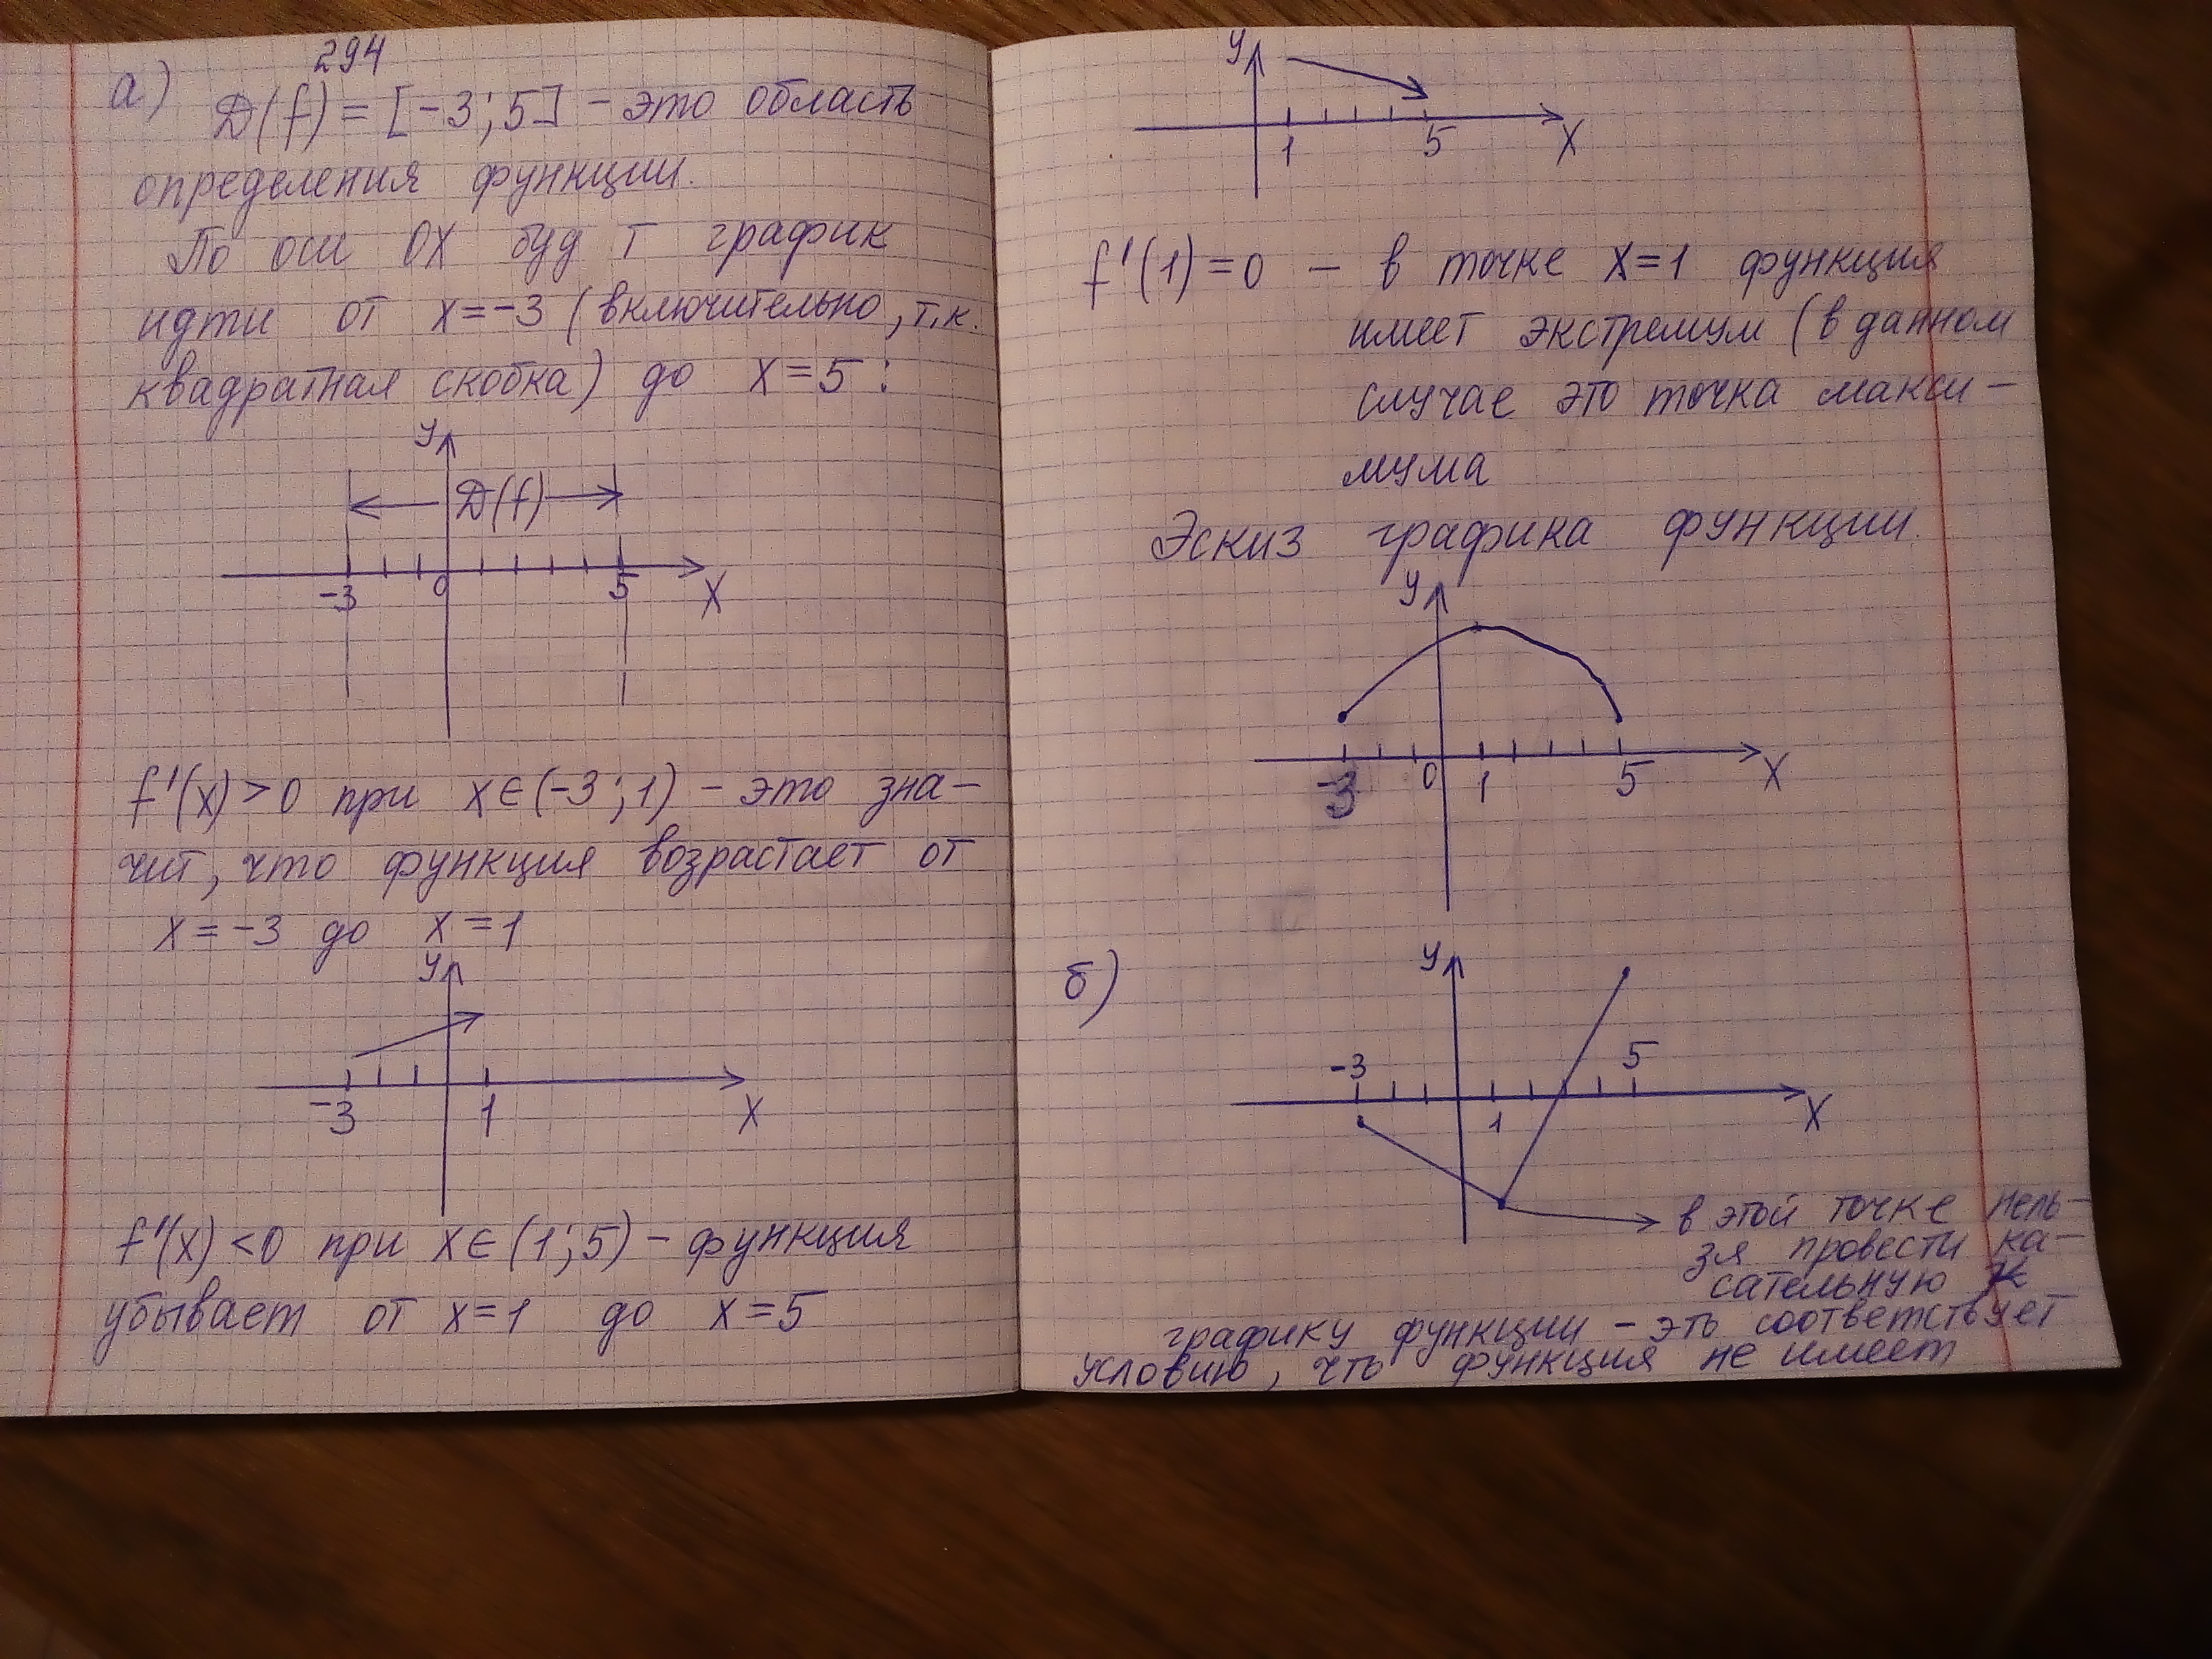 294
а) D(f) = [-3; 5] - это область
определения функции.
По оси OX буд т график
идти от x=-3 (включительно, т.к.
квадратная скобка) до x=5:
y
D(f)
-3 0 5 X
f'(x)>0 при x∈(-3; 1) - это зна-
чит, что функция возрастает от
x=-3 до x=1
y
-3 1 X
f'(x)<0 при x∈(1; 5) - функция
убывает от x=1 до x=5
y
1 5 X
f'(1)=0 - в точке x=1 функция
имеет экстремум (в данном
случае это точка макси-
мума
Эскиз графика функции.
y
-3 0 1 5 X
б)
y
-3 5
1 X
в этой точке нель-
зя провести ка-
сательную к
графику функции - это соответствует
условию, что функция не имеет